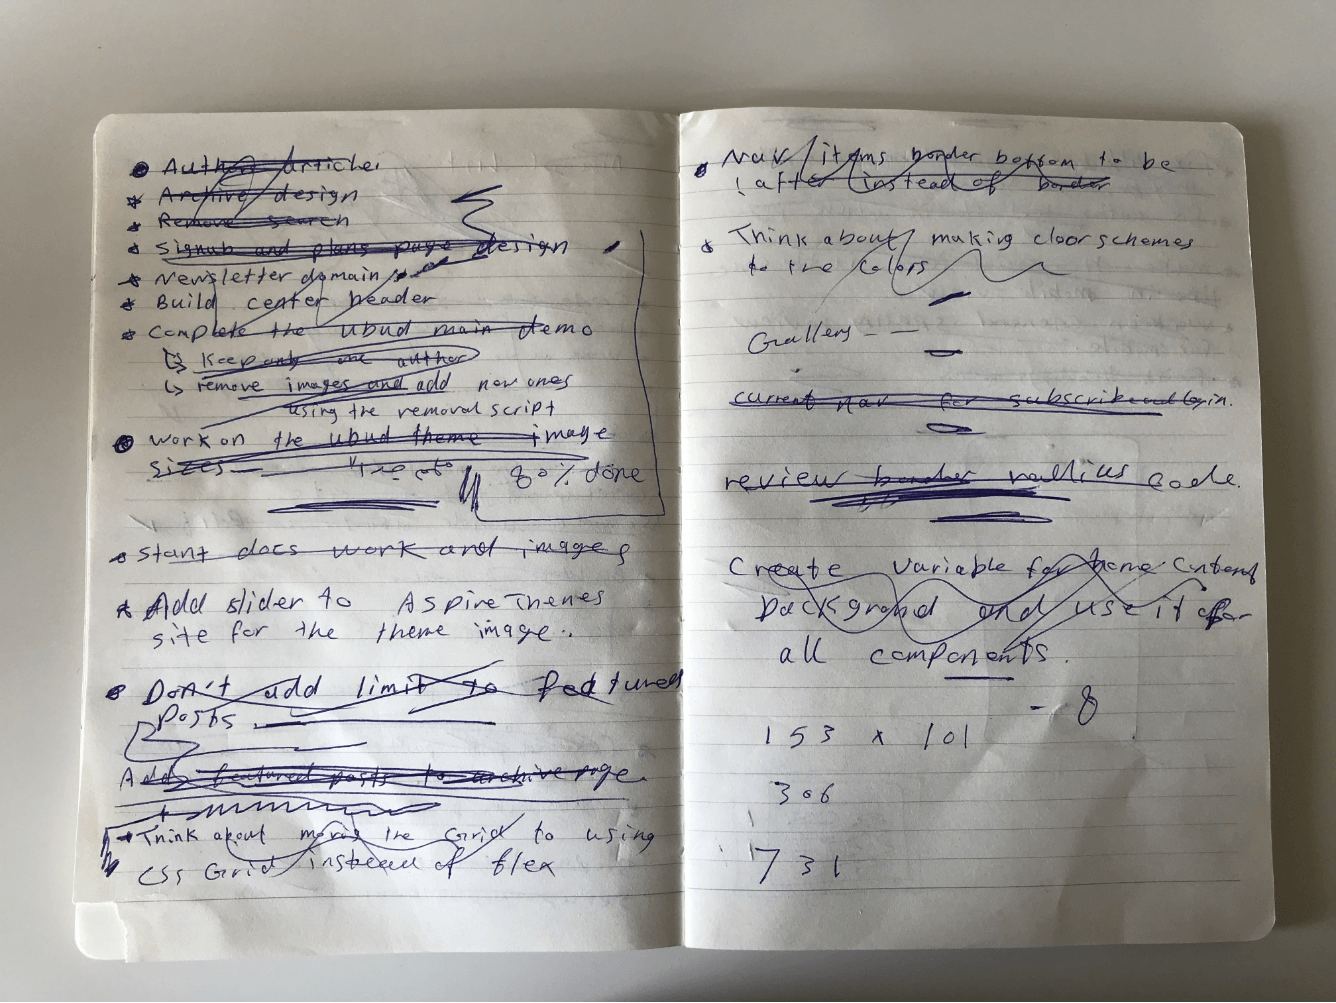 Author article
Archive design
Remove search
Signub and plans page design
Newsletter domain
Build center header
complete the ubud main demo
Keep only one author
remove images and add new ones
using the removal script
work on the ubud theme image
sizes
80% done
Start docs work and images
Add slider to AspireThemes
site for the theme image..
Don't add limit to featured
Posts
Add featured posts to archive page.
Think about moving the Grid to using
CSS Grid instead of flex
Nav items border bottom to be
:after instead of border
Think about making cloor schemes
to the colors
Gallery - —
current nav for subscribe and login.
review border radius code.
Create variable for home content
background and use it for
all components.
- 8
153 x 101
306
731